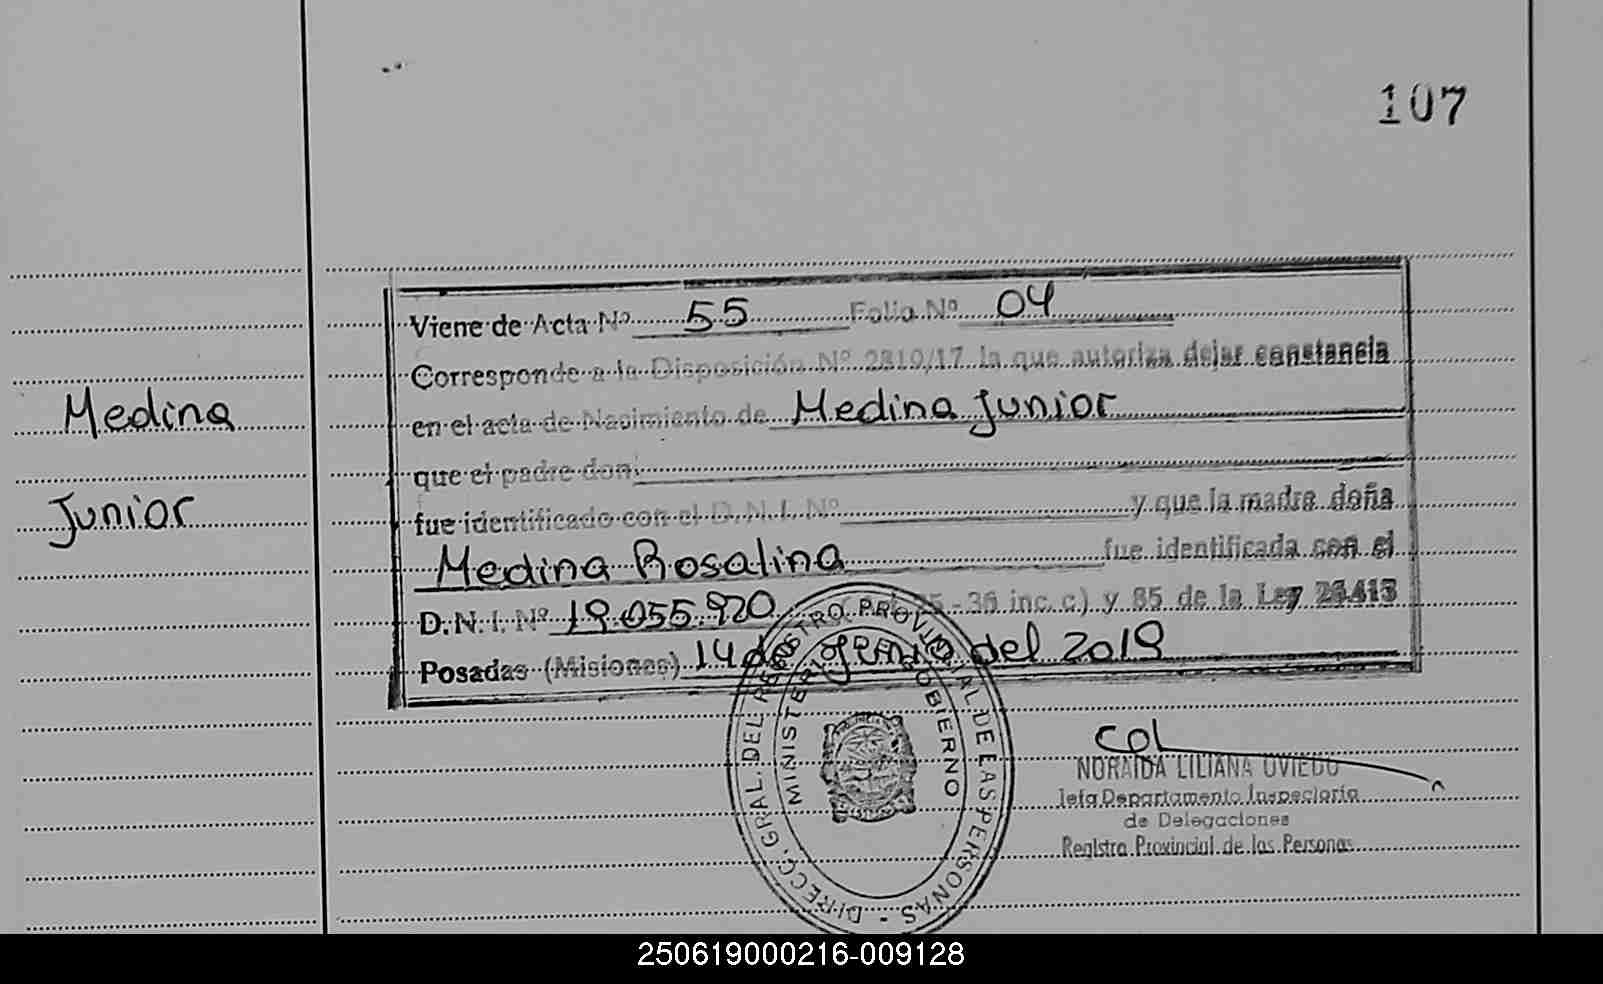 107
Viene de Acta Nº 55 Folio Nº 04
Corresponde a la Disposición Nº 2819/17 la que autoriza dejar constancia
Medina
en el acta de Nacimiento de Medina Junior
que el padre don
Junior
fue identificado con el D.N.I. Nº y que la madre doña
Medina Rosalina fue identificada con el
D.N.I. Nº 19.055.920 - 36 inc. c) y 85 de la Ley 26413
Posadas (Misiones) 14 de del 2019
DIRECC. GRAL. DEL REGISTRO PROVINCIAL DE LAS PERSONAS -
MINISTERIO GOBIERNO
NORAIDA LILIANA OVIEDO
Jefa Departamento Inspectoría
de Delegaciones
Registro Provincial de las Personas
250619000216-009128